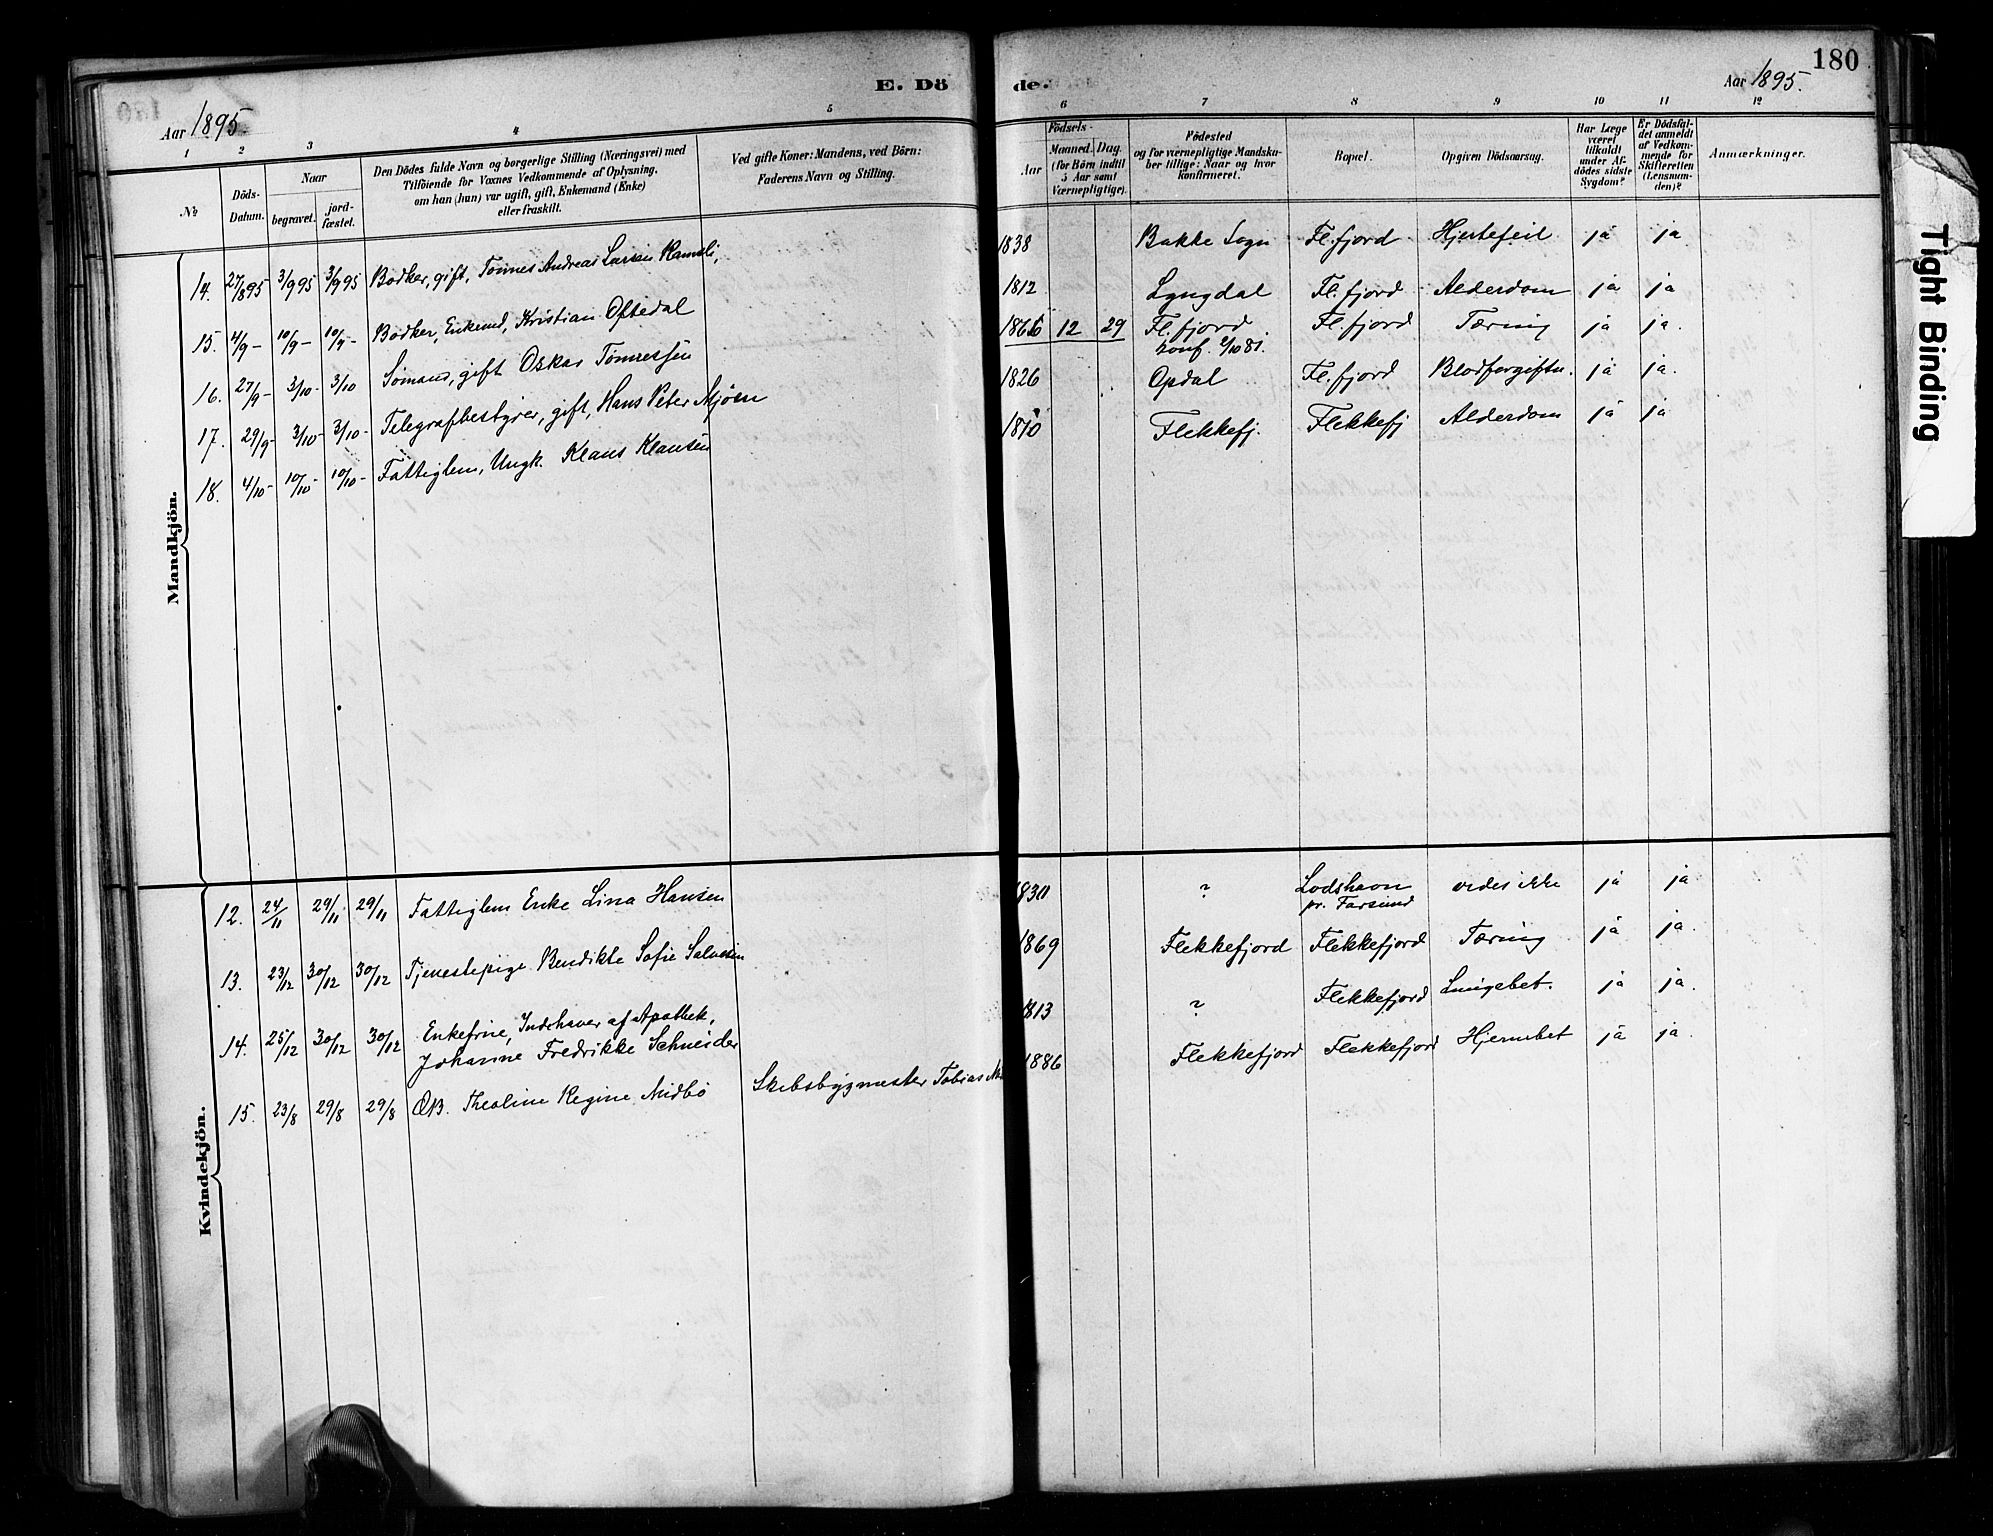 180
E. Döde.
Aar 1895.
Aar 1895.
1 2 3 4 5 6 7 8 9 10 11 12
№
Döds-Datum.
Naar
begravet.
jord-fæstet.
Den Dödes fulde Navn og borgerlige Stilling (Næringsvei) med
Tilföiende for Voxnes Vedkommende af Oplysning,
om han (hun) var ugift, gift, Enkemand (Enke)
eller fraskilt.
Ved gifte Koner: Mandens, ved Börn:
Faderens Navn og Stilling.
Födsels-
Aar
Maaned. Dag.
(for Börn indtil
5 Aar samt
Værnepligtige).
Födested
og for værnepligtige Mandska-
ber tillige: Naar og hvor
konfirmeret.
Bopæl.
Opgiven Dödsaarsag.
Har Læge
været
tilkaldt
under Af-
dödes sidste
Sygdom?
Er Dödsfal-
det anmeldt
af Vedkom-
mende for
Skifteretten
(Lensmanden)?
Anmærkninger.
Mandkjön.
14. 27/8 95 3/9 95 3/9 95 Bødker, gift, Tønnes Andreas Larsen Ramsli, 1838 Bakke Sogn Fl.fjord Hjertefeil ja ja
15. 4/9 - 10/9 - 10/9 - Bødker, Enkemd, Kristian Oftedal 1812 Lyngdal Fl.fjord Alderdom ja ja
16. 27/9 - 3/10 - 3/10 Sømand, gift Oskar Tønnessen 1866 12 29 Fl.fjord Fl.fjord Tæring ja ja.
konf. 2/10 81.
17. 29/9 - 3/10 - 3/10 - Telegrafbestyrer, gift, Hans Peter Mjøen 1826 Opdal Fl.fjord Blodforgiftn. ja ja.
18. 4/10 - 10/10 - 10/10 - Fattiglem, Ungk. Klaus Klausen Flekkefj. Flekkefj Alderdom ja ja
Kvindekjön.
12. 24/11 29/11 29/11 Fattiglem Enke Lina Hansen 1830 ? Lodshavn vides ikke ja ja
pr. Farsund
13. 23/12 30/12 30/12 Tjenestepige Bendikte Sofie Salvesen 1869 Flekkefjord Flekkefjord Tæring ja ja.
14. 25/12 30/12 30/12 Enkefrue, Indehaver af Apothek, 1813 ? Flekkefjord Lungebet. ja ja.
Johanne Fredrikke Schneider
15. 23/8 29/8 29/8 Thealine Regine Midbø Skibsbygmester Tobias 1886 Flekkefjord Flekkefjord Hjernebet ja ja.
Tight Binding